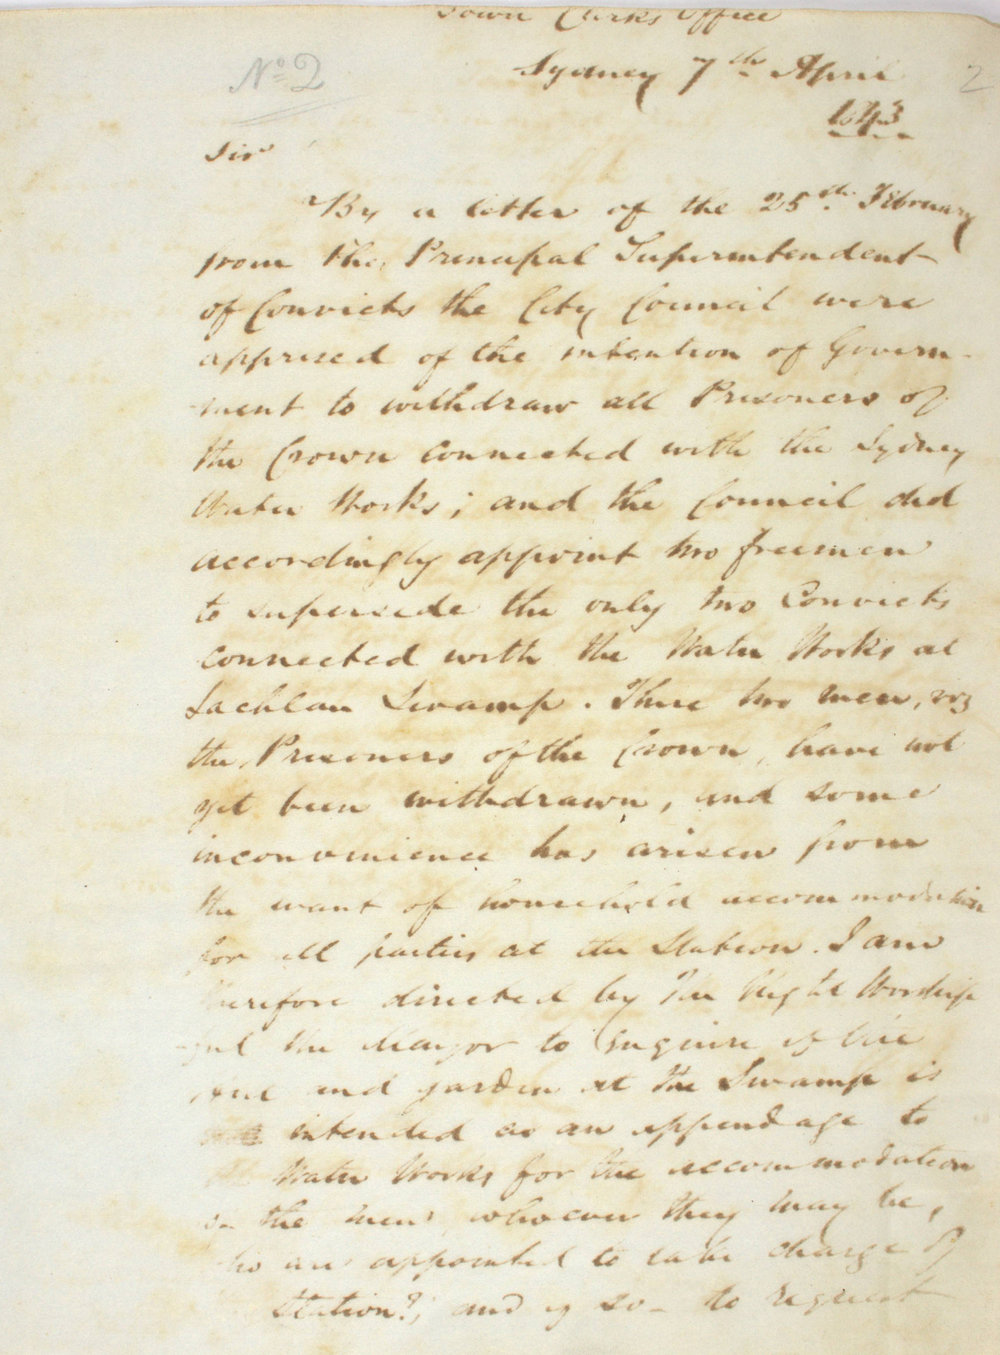 Town Clerks Office
No 2
Sydney 7th April
2
1843
Sir
By a letter of the 25th February
from the Principal Superintendent
of Convicts the City Council were
apprised of the intention of Govern-
ment to withdraw all Prisoners of
the Crown connected with the Sydney
Water Works; and the Council did
accordingly appoint two freemen
to supersede the only two Convicts
connected with the Water Works at
Lachlan Swamp. These two men, viz
the Prisoners of the Crown, have not
yet been withdrawn, and some
inconvenience has arisen from
the want of household accommodation
for all parties at the Station. I am
therefore directed by The Right Worship
ful the Mayor to enquire if the
and garden at the Swamp is
intended as an appendage to
Water Works for the accommodation
the men, whoever they may be,
who are appointed to take charge of
Station?; and if so - to request